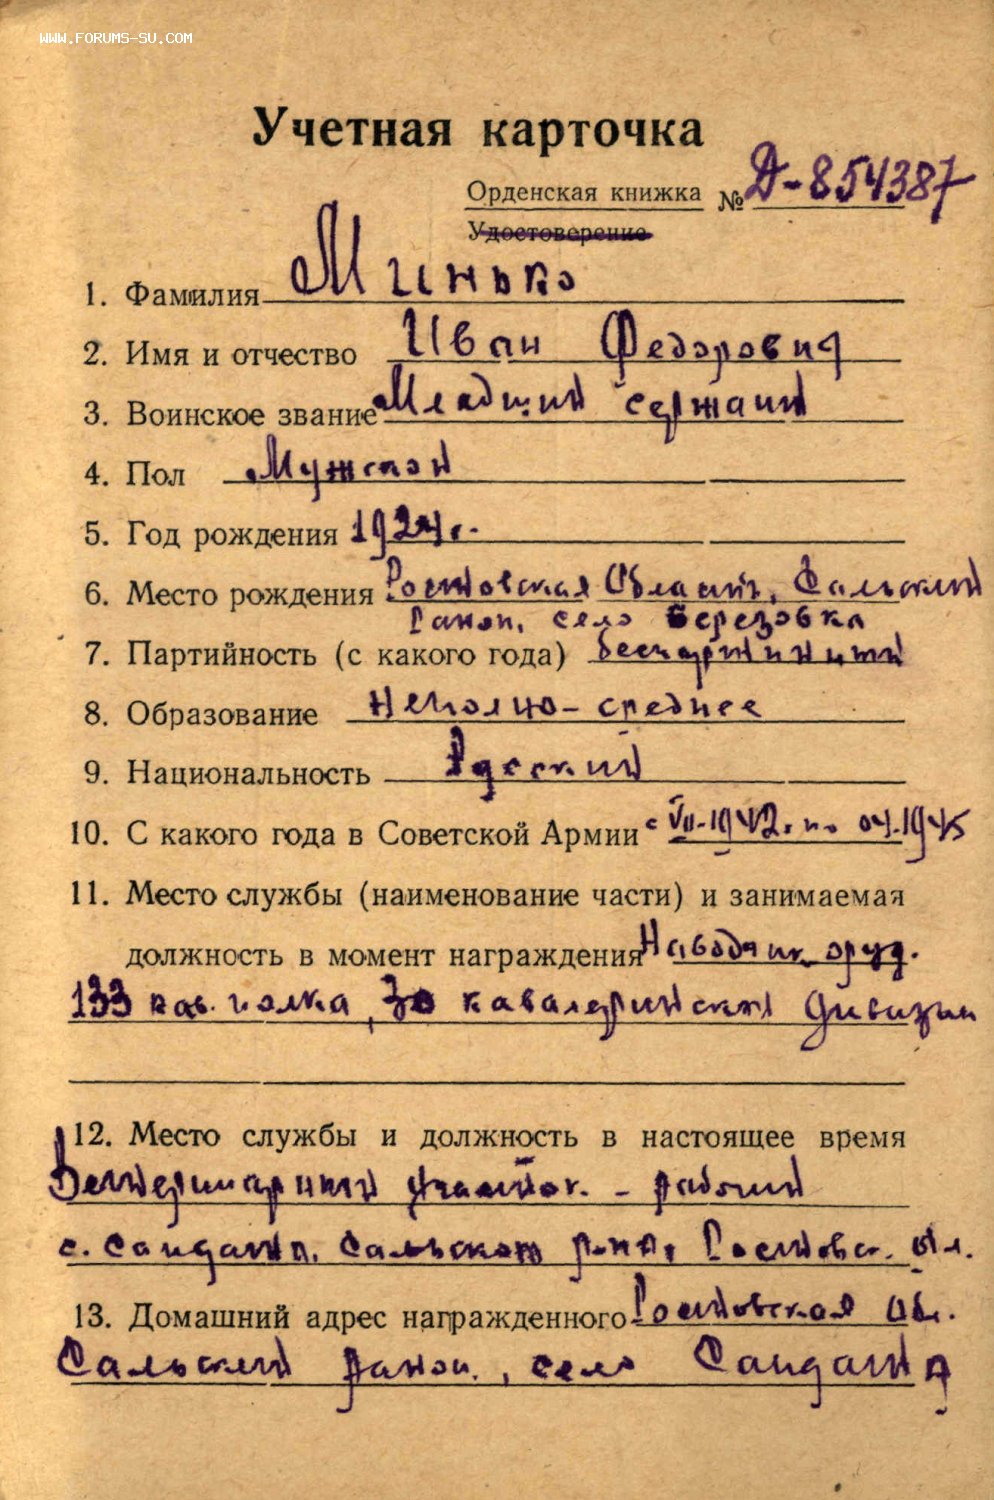 WWW.FORUMS-SU.COM
Учетная карточка
Орденская книжка № Д-854387
Удостоверение
1. Фамилия Минько
2. Имя и отчество Иван Федорович
3. Воинское звание Младший сержант
4. Пол Мужской
5. Год рождения 1924 г.
6. Место рождения Ростовская Область, Сальский
район, село Березовка
7. Партийность (с какого года) беспартийный
8. Образование Неполно-среднее
9. Национальность Русский
10. С какого года в Советской Армии с VII-1942. по 04.1945
11. Место службы (наименование части) и занимаемая
должность в момент награждения Наводчик оруд.
133 кав. полка, 30 кавалерийской дивизии
12. Место службы и должность в настоящее время
Ветеринарный участок - рабочий
с. Сандата, Сальского р-на, Ростовск. обл.
13. Домашний адрес награжденного Ростовская обл.
Сальский район, село Сандата